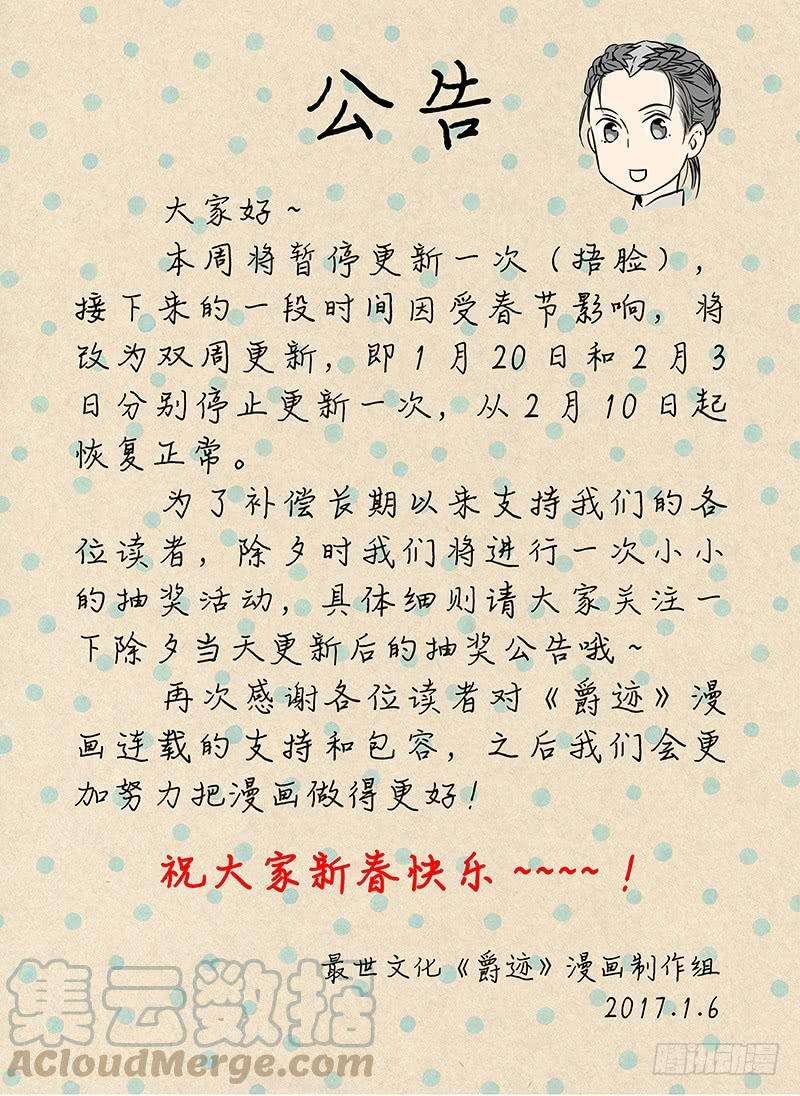 公告
大家好~
本周将暂停更新一次（捂脸），
接下来的一段时间因受春节影响，将
改为双周更新，即1月20日和2月3
日分别停止更新一次，从2月10日起
恢复正常。
为了补偿长期以来支持我们的各
位读者，除夕时我们将进行一次小小
的抽奖活动，具体细则请大家关注一
下除夕当天更新后的抽奖公告哦~
再次感谢各位读者对《爵迹》漫
画连载的支持和包容，之后我们会更
加努力把漫画做得更好！
祝大家新春快乐~~~~！
最世文化《爵迹》漫画制作组
2017.1.6
集云数据
ACloudMerge.com
腾讯动漫